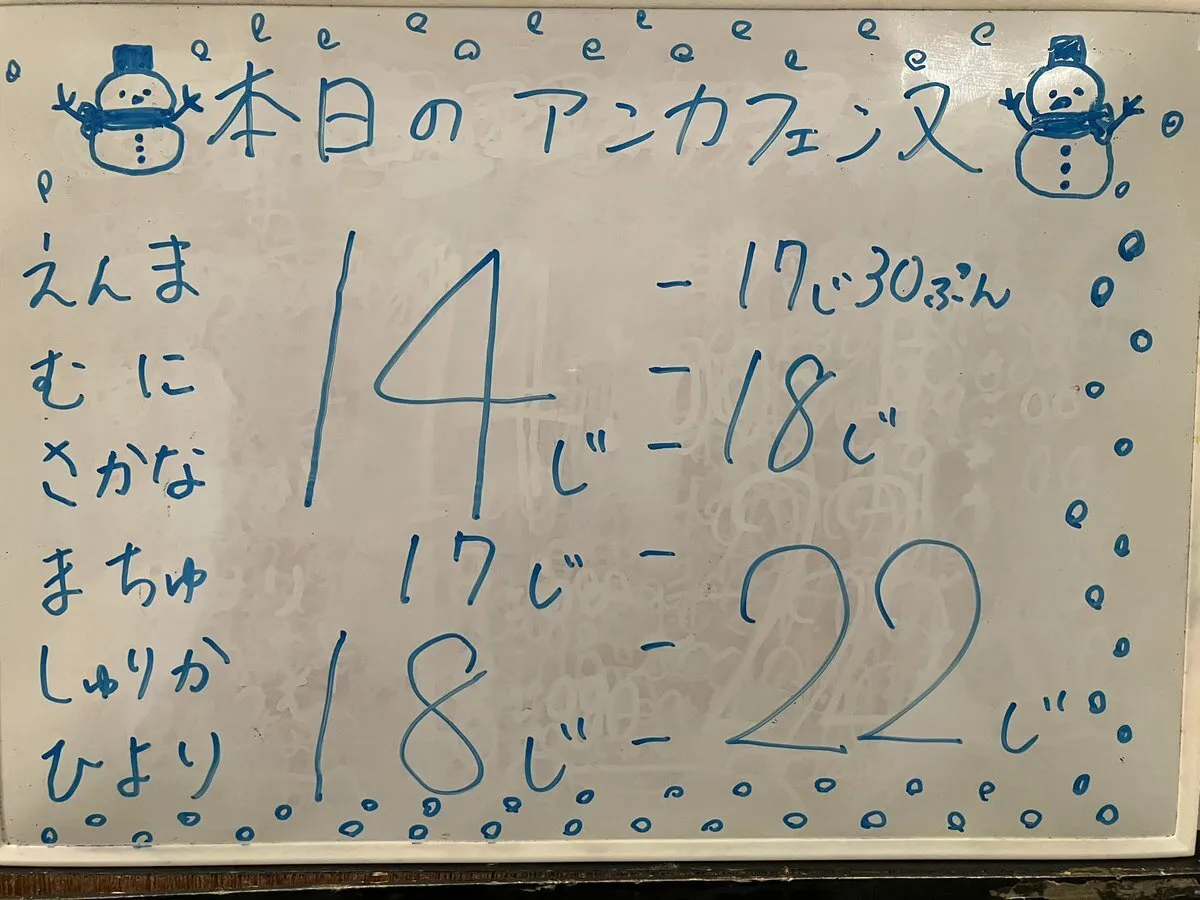 本日のアンカフェンヌ
えんま 14じ - 17じ30ぷん
むに - 18じ
さかな -
まちゅ 17じ - 22じ
しゅりか 18じ -
ひより -